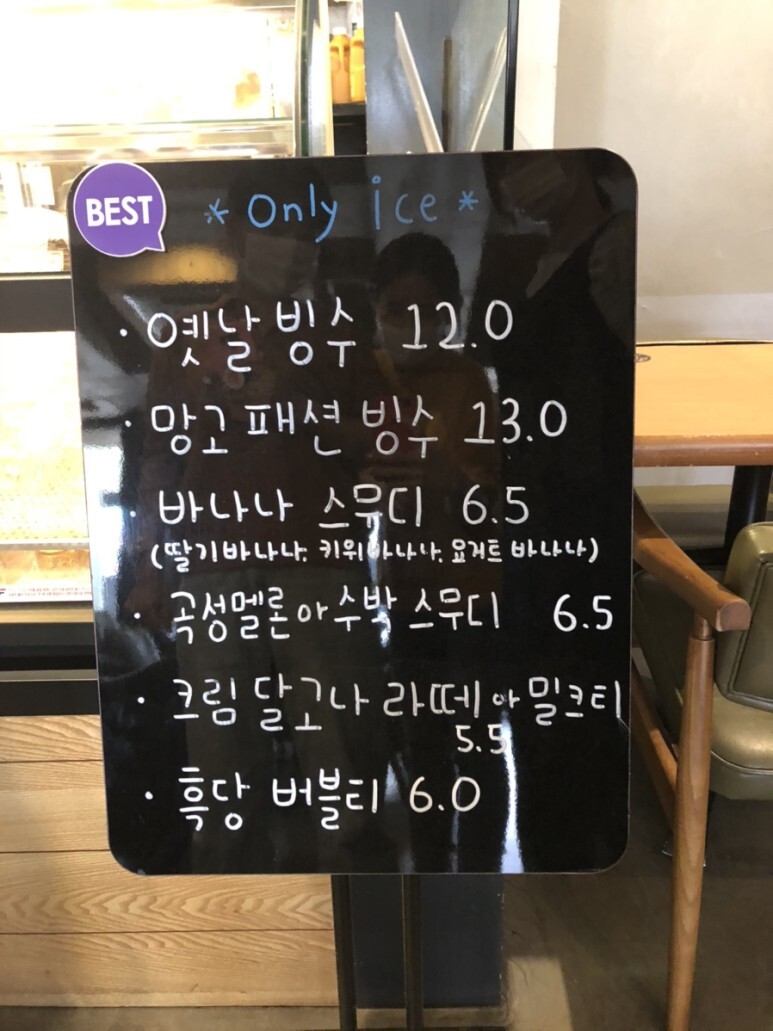 BEST
* Only ice *
· 옛날 빙수 12.0
· 망고 패션 빙수 13.0
· 바나나 스무디 6.5
(딸기바나나, 키위바나나, 요거트 바나나)
· 곡성멜론 or 수박 스무디 6.5
· 크림 달고나 라떼 or 밀크티
5.5
· 흑당 버블티 6.0